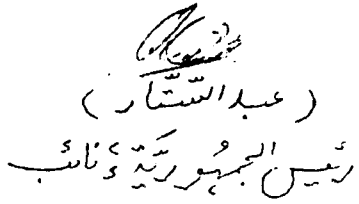 (عبد السَّتَّار)
رئيس الجمهُوريَّة نائب